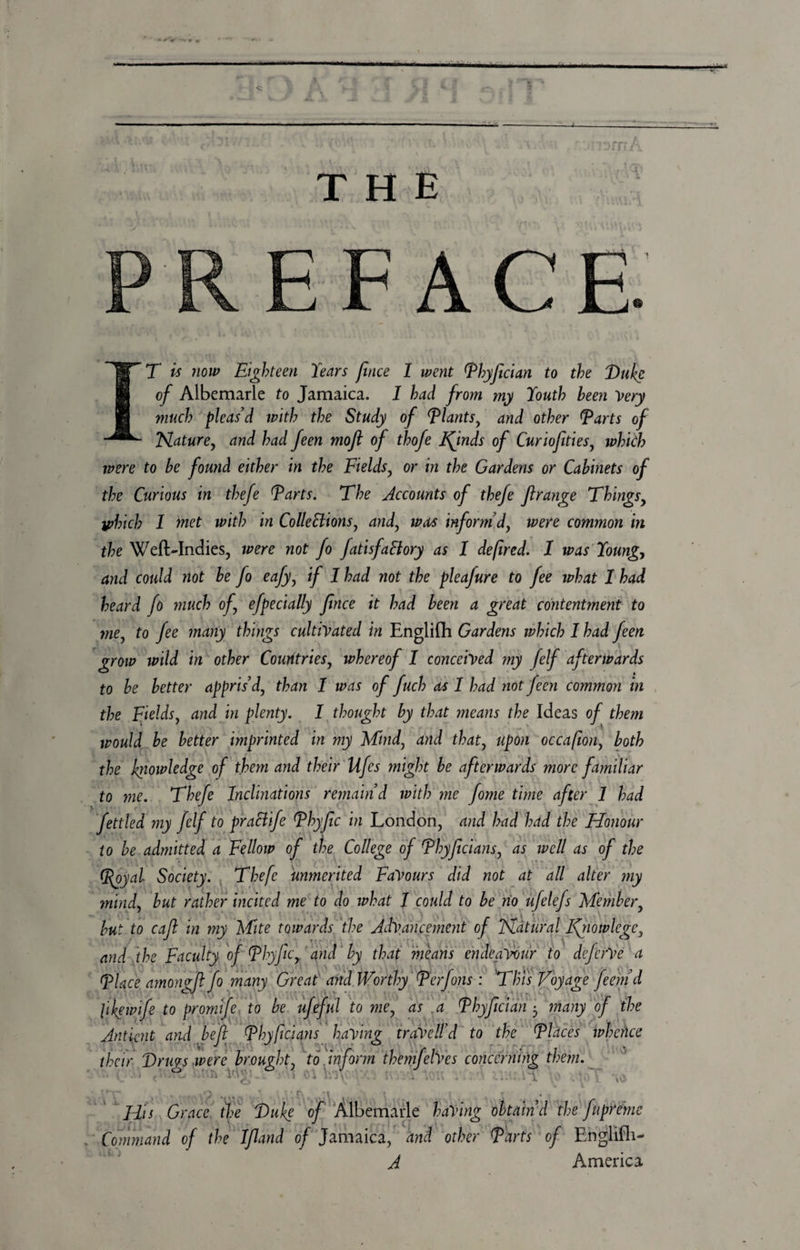 THE
PREFACE.
IT is now Eighteen Years ſince I went Phyſician to the Duke
of Albemarle to Jamaica. I had from my Youth been very
much pleas'd with the Study of Plants, and other Parts of
Nature, and had ſeen moſt of thoſe Kinds of Curioſities, which
were to be found either in the Fields, or in the Gardens or Cabinets of
the Curious in theſe Parts. The Accounts of theſe ſtrange Things,
which I met with in Collections, and, was inform'd, were common in
the Weſt-Indies, were not ſo ſatisfactory as I deſired. I was Young,
and could not be ſo eaſy, if I had not the pleaſure to ſee what I had
heard ſo much of, eſpecially ſince it had been a great contentment to
me, to ſee many things cultivated in Engliſh Gardens which I had ſeen
grow wild in other Countries, whereof I conceived my ſelf afterwards
to be better appris'd, than I was of ſuch as I had not ſeen common in
the Fields, and in plenty. I thought by that means the Ideas of them
would be better imprinted in my Mind, and that, upon occaſion, both
the knowledge of them and their Uſes might be afterwards more familiar
to me. Theſe Inclinations remain'd with me ſome time after I had
ſettled my ſelf to practiſe Phyſic in London, and had had the Honour
to be admitted a Fellow of the College of Phyſicians, as well as of the
Royal Society. Theſe unmerited Favours did not at all alter my
mind, but rather incited me to do what I could to be no uſeleſs Member,
but to caſt in my Mite towards the Advancement of Natural Knowlege,
and the Faculty of Phyſic, and by that means endeavour to deſerve a
Place amongſt ſo many Great and Worthy Perſons : This Voyage ſeem'd
likewiſe to promiſe to be uſeful to me, as a Phyſician ; many of the
Antient and beſt Phyſicians having travell'd to the Places whence
their Drugs were brought, to inform themſelves concerning them.
His Grace the Duke of Albemarle having obtain'd the ſupreme
Command of the Iſland of Jamaica, and other Parts of Engliſh-
A America